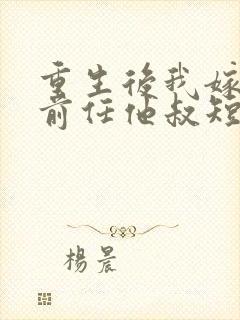 重生後我嫁
前任他叔短
楊晨